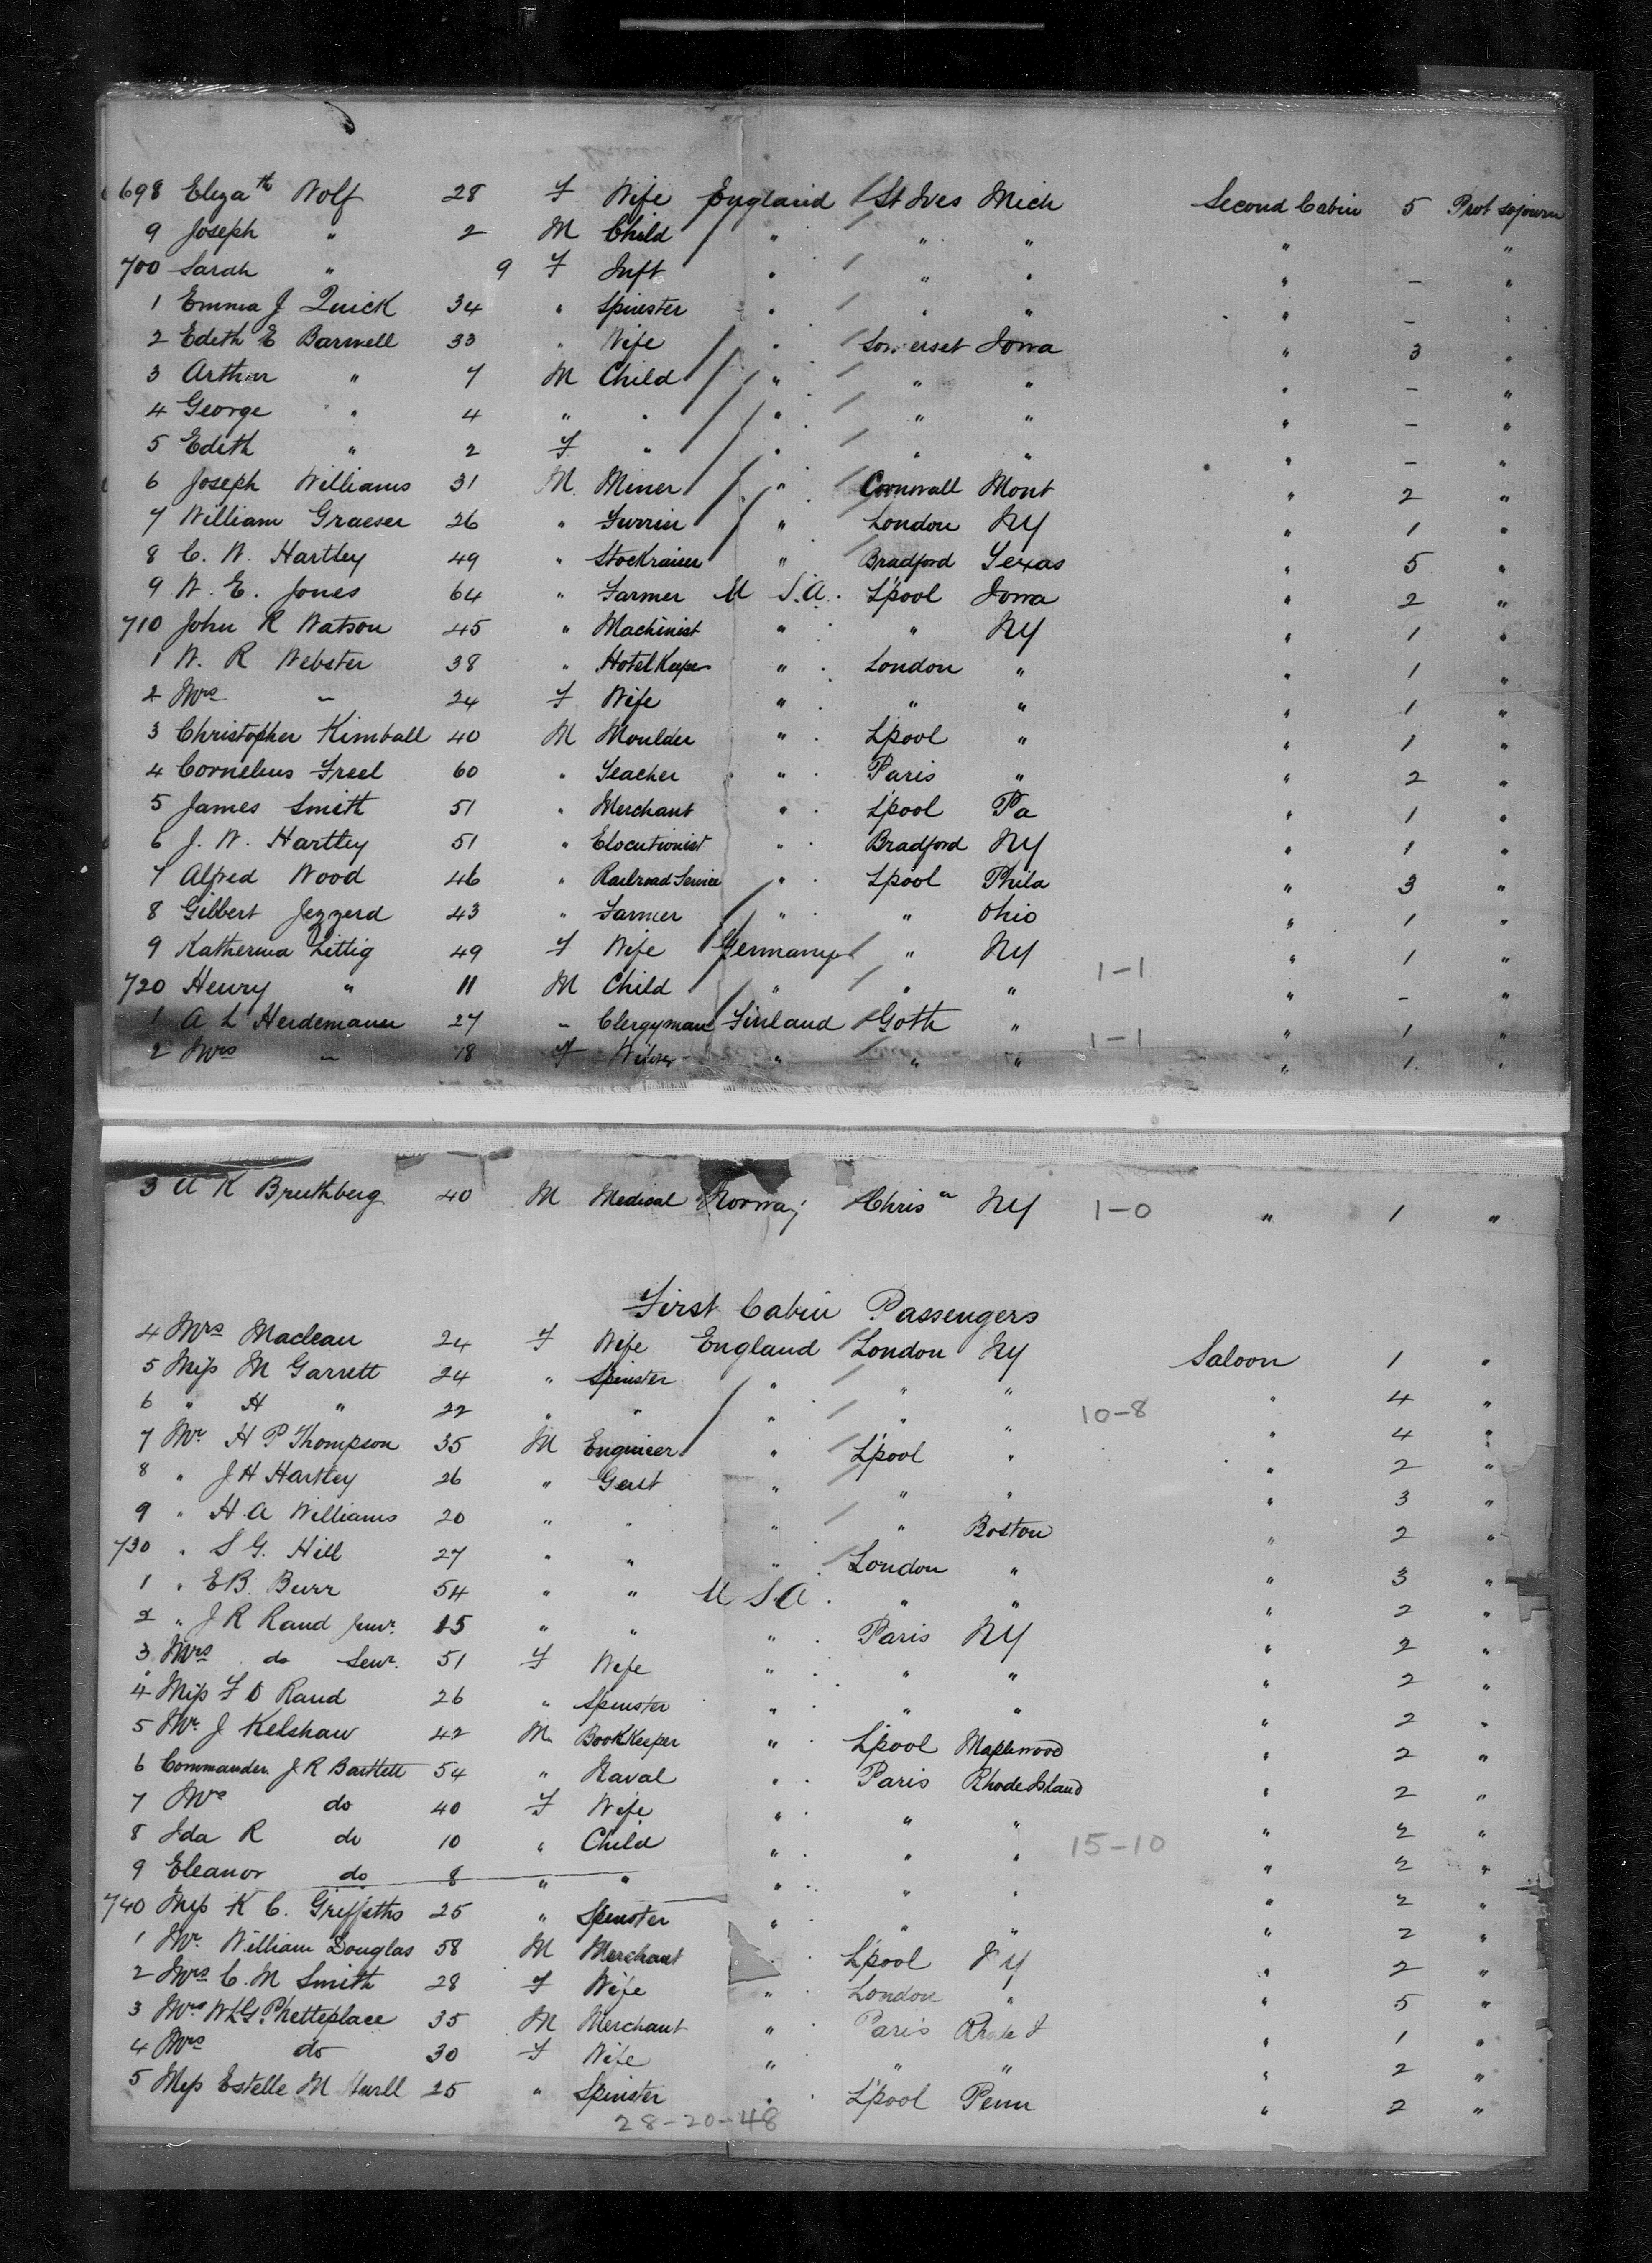 698 Elizath Wolf 28 F Wife England St Ives Mich Second Cabin 5 Prot sojourn
9 Joseph " 2 M Child " " " " "
700 Sarah " 9 F Inft " " " " – "
1 Emma J Quick 34 " Spinster " " " " – "
2 Edith E Barwell 33 " Wife " Somerset Iowa " 3 "
3 Arthur " 7 M Child " " " " – "
4 George " 4 " " " " " " – "
5 Edith " 2 F " " " " " – "
6 Joseph Williams 31 M. Miner " Cornwall Mont " 2 "
7 William Graeser 26 " Furrier " London NY " 1 "
8 C. W. Hartley 49 " Stockraiser " Bradford Texas " 5 "
9 W. E. Jones 64 " Farmer U S.A. L'pool Iowa " 2 "
710 John R Watson 45 " Machinist " " NY " 1 "
1 W. R Webster 38 " Hotel Keeper " London " " 1 "
2 Mrs " 24 F Wife " " " " 1 "
3 Christopher Kimball 40 M Moulder " L'pool " " 1 "
4 Cornelius Freel 60 " Teacher " Paris " " 2 "
5 James Smith 51 " Merchant " L'pool Pa " 1 "
6 J. W. Hartley 51 " Elocutionist " Bradford NY " 1 "
7 Alfred Wood 46 " Railroad Service " L'pool Phila " 3 "
8 Gilbert Jezzerd 43 " Farmer " " Ohio " 1 "
9 Katherina Littig 49 F Wife Germany " NY " 1 "
720 Henry " 11 M Child " " " 1–1 " – "
1 A L Herdemann 27 " Clergyman Finland Goth " " 1 "
2 Mrs " 18 F Wife " " " 1–1 " 1 "
3 A K Bruthberg 40 M Medical Norway Chrisa NY 1–0 " 1 "
First Cabin Passengers
4 Mrs Maclean 24 F Wife England London NY Saloon 1 "
5 Miss M Garrett 24 " Spinster " " " " 4 "
6 " H " 22 " " " " " 10–8 " 4 "
7 Mr. H P Thompson 35 M Engineer " L'pool " " 2 "
8 " J H Hartley 26 " Gent " " " " 3 "
9 " H. A Williams 20 " " " " Boston " 2 "
730 " S G. Hill 27 " " " London " " 3 "
1 " E B. Burr 54 " " U S.A. " " " 2 "
2 " J R Rand Junr. 15 " " " Paris NY " 2 "
3 Mrs do Senr. 51 F Wife " " " " 2 "
4 Miss F D Rand 26 " Spinster " " " " 2 "
5 Mr. J Kelshaw 42 M. Book Keeper " L'pool Maplewood " 2 "
6 Commander. J R Bartlett 54 " Naval " Paris Rhode Island " 2 "
7 Mrs do 40 F Wife " " " " 2 "
8 Ida R do 10 " Child " " " 15–10 " 2 "
9 Eleanor do 8 " " " " " " 2 "
740 Miss K C. Griffiths 25 " Spinster " " " " 2 "
1 Mr. William Douglas 58 M Merchant L'pool NY " 2 "
2 Mrs C. M Smith 28 F Wife " London " " 5 "
3 Mr W L G. Phetteplace 35 M Merchant " Paris Rhode I " 1 "
4 Mrs do 30 F Wife " " " " 2 "
5 Miss Estelle M Hurll 25 " Spinster " L'pool Penn " 2 "
28–20–48